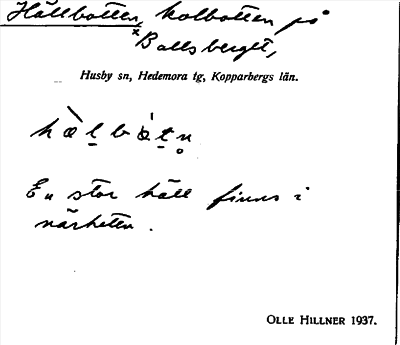 Hällbotten, kolbotten på
x Ballsberget,
Husby sn, Hedemora tg, Kopparbergs län.
hæ̀l̠bát̠n̥
En stor häll finns i
närheten.
OLLE HILLNER 1937.